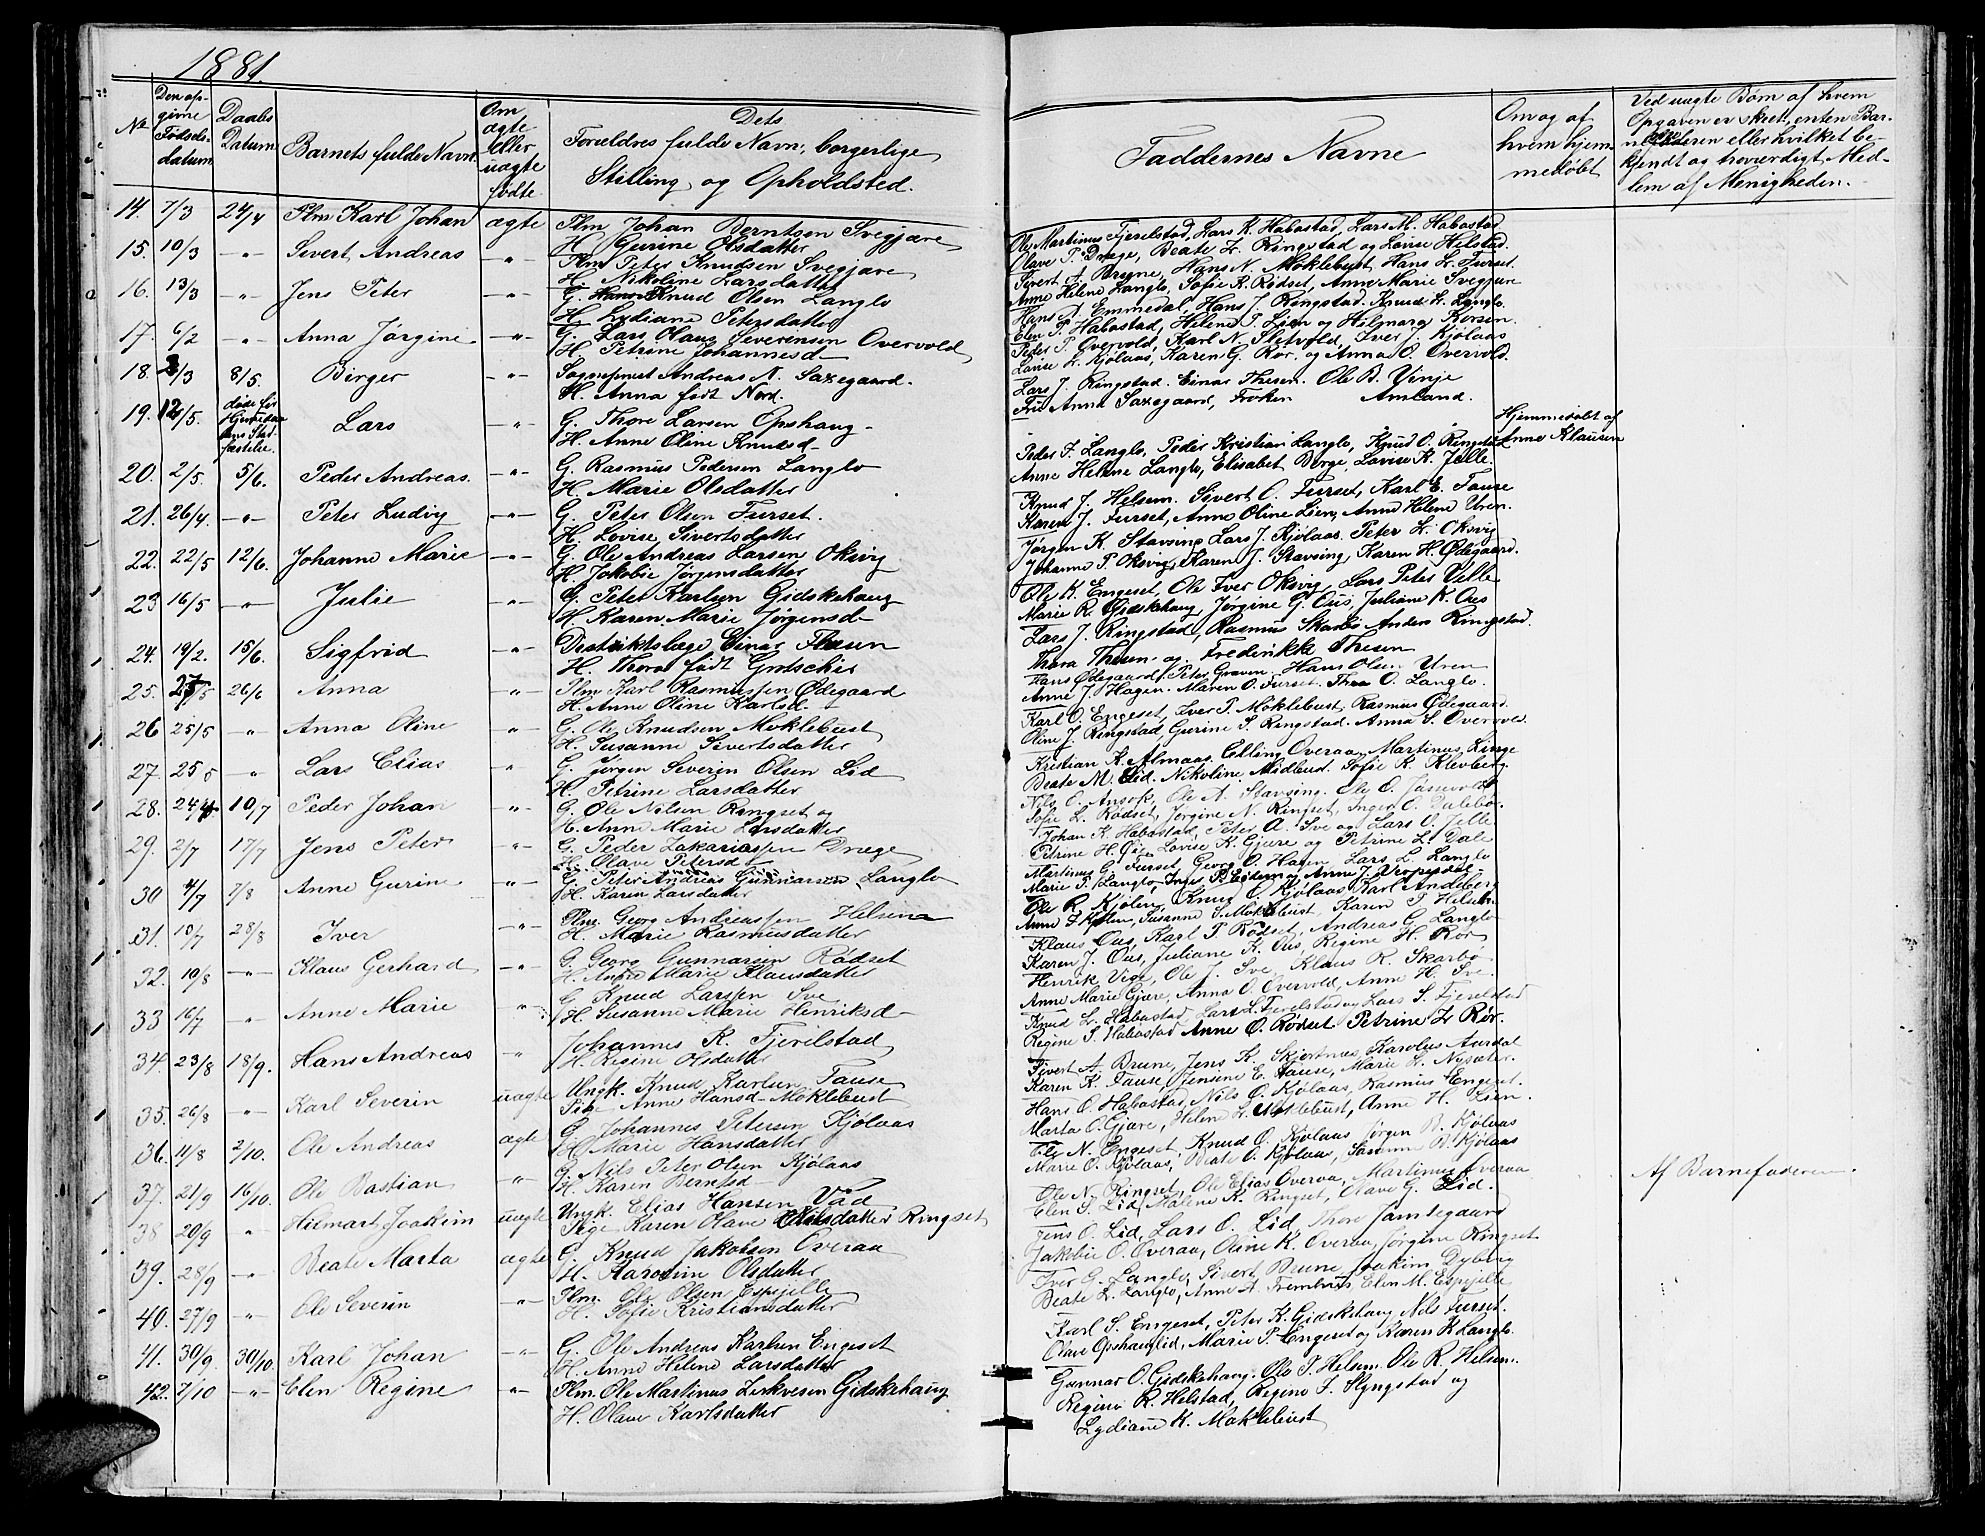 1881.
No
Den opgivne Fødselsdatum
Daabs Datum
Barnets fulde Navn
Om ægte eller uægte fødte
Dets Forældres fulde Navn, borgerlige Stilling og Opholdsted.
14. 7/3 24/4 Plm Karl Johan ægte Plm Johan Berntsen Svegjære
H. Gurine Olsdatter
15. 10/3 -"- Sivert Andreas -"- Plm Peter Knudsen Svegjære
H. Nikoline Larsdatter
16. 13/3 -"- Jens Peter -"- G. Knud Olsen Langlo
H. Lydiane Petersdatter
17. 6/2 -"- Anna Jørgine -"- G. Lars Olaus Severensen Overvold
H. Petrine Johannesd-
18. /3 8/5. Birger -"- Sognepræst Andreas N. Saxegaard.
H. Anna født Nord.
19. 12/5. døde før Lars -"- G. Thore Larsen Opshaug
H. Anne Oline Knudsd-
20. 2/5. 5/6. Peder Andreas. -"- G. Rasmus Pedersen Langlo
H. Marie Olsdatter
21. 26/4. -"- Peter Ludvig -"- G. Peter Olsen Furset.
H. Lovise Sivertsdatter
22. 22/5 12/6. Johanne Marie -"- G. Ole Andreas Larsen Oksvig
H. Jakobie Jørgensdatter
23 16/5 -"- Julie -"- G. Peter Karlsen Gidskehaug
H. Karen Marie Jørgensd-
24. 19/2. 15/6. Sigfrid -"- Distriktslæge Einar Thesen
H. Thora født
25. 27/5 26/6 Anna -"- Plm Karl Rasmussen Ødegaard
H. Anne Oline Karlsd.
26 25/5 -"- Anna Oline -"- G. Ole Knudsen Moklebust
H. Susanne Sivertsdatter
27. 25 5 -"- Lars Elias -"- G. Jørgen Severin Olsen Lid
H. Petrine Larsdatter
28. 24/4. 10/7 Peder Johan -"- G. Ole Nilsen Ringset og
H. Anne Marie Larsdatter
29. 2/7 17/7 Jens Peter -"- G. Peder Zakariassen Drege
H. Olave Petersd
30 4/7 7/8 Anne Gurine -"- G. Peter Andreas Gunnarsen Langlo
H. Karen Larsdatter
31. 10/7 28/8 Iver -"- Plm. Georg Andreassen Helsem
H. Marie Rasmusdatter
32. 10/8 -"- Klaus Gerhard -"- G. Georg Gunnarsen Rødset
H. Anne Marie Klausdatter
33 16/7 -"- Anne Marie -"- G. Knud Larssen Sve
H. Susanne Marie Henriksd-
34. 23/8 18/9. Hans Andreas -"- Johannes R. Fjerilstad
H. Regine Olsdatter
35. 26/8 -"- Karl Severin uægte Ungk. Knud Karlsen Tause
Pige Anne Hansd- Moklebust
36. 11/8 2/10. Ole Andreas ægte G. Johannes Petersen Kjølaas
H. Marie Hansdatter
37. 21/9 16/10. Ole Bastian -"- G. Nils Peter Olsen Kjølaas
H. Karen Berntsd-
38 20/9 -"- Hilmart Joakim uægte Ungk. Elias Hansen Vad
Pige Karen Olave Olsdatter Ringset
39. 28/9 -"- Beate Marta ægte G. Knud Jakobsen Overaa
H. Karoline Olsdatter
40. 27/9 -"- Ole Severin -"- Plm. Ole Olsen Espejelle
H. Sofie Kristiansdatter
41. 30/9. 30/10. Karl Johan -"- G. Ole Andreas Karlsen Engeset
H. Anne Helene Larsdatter
42. 7/10 -"- Elen Regine -"- Plm. Ole Martinus Gidskehaug
H. Olave Karlsdatter
Faddernes Navne
Om og af hvem hjemmedøbt
Ved uægte Børn af hvem Opgaven er skeet, enten Barnefaderen eller hvilket bekjendt og troværdigt Medlem af Menigheden.
Ole Martinus Fjerelstad, Lars K. Habostad, Lars M. Habostad
Olave P. Drege, Beate L. Ringstad og Lovise Helstad.
Sivert A. Bryne, Hans N. Moklebust, Hans L. Furset.
Anne Helene Langlo, Sofie R. Rødset, Anne Marie Svegjære
Hans A. Emmedal, Hans J. Ringstad. Knud L. Langlo.
Elen P. Habostad, Helene P. Lien og Hilmara Korsen.
Peder P. Overvold, Karl N. Sletvold, Iver J. Kjølaas
Lovise L. Kjølaas, Karen G. Rør. og Anna O. Overvold.
Lars J. Ringstad. Einar Thesen. Ole B. Vinje
Fru Anna Saxegaard, Frøken Amland.
Hjemmedøbt af Anne Klausen
Peter F. Langlo, Peder Kristian Langlo, Knud O. Ringstad
Anne Helene Langlo, Elisabet Berge, Lovise K. Jelle
Knud J. Helsem. Sivert O. Furset, Karl E. Tause
Karen J. Furset, Anne Oline Lien, Anne Helene Uren.
Jørgen K. Stavsing Lars J. Kjølaas. Peter L. Oksvig
Johanne P. Oksvig, Karen J. Stavsing, Karen H. Ødegaard.
Ole K. Engeset, Ole Iver Oksvig, Lars Peter Velle
Marie R. Gidskehaug, Jørgine G. Ous, Juliane K. Ous
Lars J. Ringstad, Rasmus Skarbø Anders Ringstad.
Thora Thesen og Frederikke Thesen
Hans Ødegaard, Peter Graven. Hans Olsen Uren
Anne J. Hagen. Maren O. Furset. Thea O. Langlo.
Karl O. Engeset, Iver P. Moklebust, Rasmus Ødegaard.
Oline J. Ringstad, Gurine S. Ringstad. Anna S. Overvold.
Kristian K. Almaas. Elling Overaa, Martinus Linge
Beate M. Lid. Nikoline Midbust. Sofie K. Klevberg.
Nils O. Ansok, Ole A. Stavsing. Ole O.
Sofie L. Rødset, Jørgine N. Ringset, Inger O. Dalebø.
Johan K. Habostad, Peter A. Sve og Lars O. Jelle
Petrine H. Øie. Lovise K. Gjære og Petrine L. Dale
Martinus G. Furset, Georg O. Hagen, Lars L. Langlo
Marie P. Langlo, Inger P. og Anne J.
Ole R. Kjølen, Knud O. Kjølaas, Karl
Anne Kjølen, Susanne S. Moklebust, Karen P. Helsem.
Klaus Ous, Karl P. Rødset, Andreas G. Langlo
Karen J. Ous, Juliane K. Ous, Regine H. Rør
Henrik Vige, Ole J. Sve, Klaus R. Skarbø
Anne Marie Gjære, Anna O. Overvold, Anne H. Sve.
Knud L. Habostad, Lars L. Fjerelstad og Lars S. Fjerelstad
Regine S. Habostad, Anne O. Rødset, Petrine L. Rør.
Sivert A. Brune, Jens K. Skjortnæs, Karolus Aurdal
Karen K. Tause, Jensine E. Tause, Marie L. Nysæter.
Hans O. Habostad, Nils O. Kjølaas, Rasmus Engeset.
Marta O. Gjære, Helene L. Moklebust, Anne H. Lien.
Ole N. Engeset, Knud O. Kjølaas, Jørgen B. Kjølaas
Marie O. Kjølaas, Beate O. Kjølaas, Susanne B. Kjølaas
Ole N. Ringset, Ole Elias Overaa, Martinus Overaa
Elen S. Lid, Malene K. Ringset, Olave G. Lid.
Af Barnefaderen.
Jens O. Lid, Lars O. Lid, Thore Jamtegaard
Jakobie O. Overaa, Oline K. Overaa, Jørgine Ringset
Iver G. Langlo, Sivert Brune, Joakim Dyberg
Beate L. Langlo, Anne A. Elen M. Espejelle
Karl S. Engeset, Peter K. Gidskehaug, Nils Furset.
Olave Opshauglid, Marie P. Engeset og Karen K. Langlo.
Gunnar O. Gidskehaug. Ole P. Helsem. Ole R. Helsem.
Regine R. Helstad, Regine J. Slyngstad og
Lydiane K. Moklebust